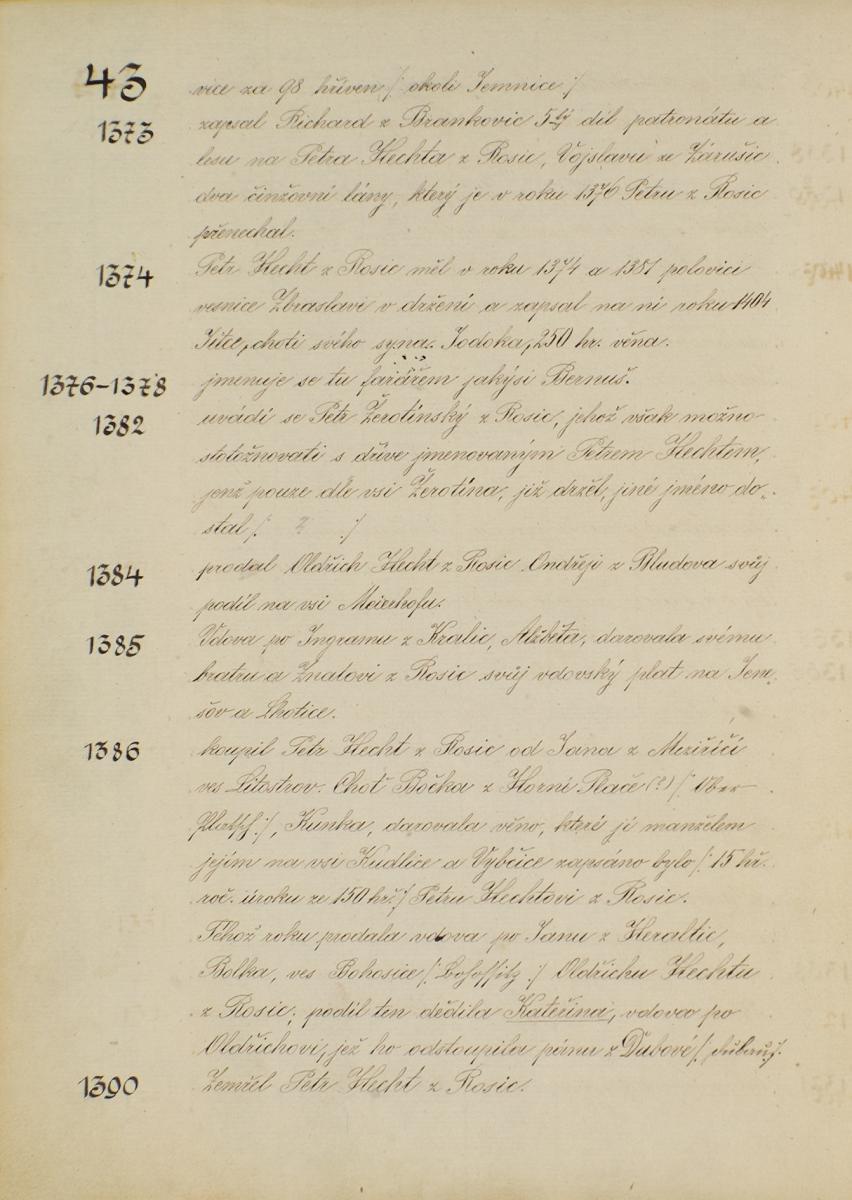 43 více za 98 hřiven /: okolí Jemnice :/
1373 zapsal Richard z Brankovic 5tý díl patronátu a
lesu na Petra Hechta z Rosic, Vojslavu ze Zárušic
dva činžovní lány, který je v roku 1376 Petru z Rosic
přenechal.
1374 Petr Hecht z Rosic měl v roku 1374 a 1381 polovici
vesnice Zbraslavi v držení a zapsal na ni roku 1404
Jitce, choti svého syna Jodoka, 250 hr. věna.
1376-1378 jmenuje se tu farářem jakýsi Bernuš.
1382 uvádí se Petr Žerotínský z Rosic, jehož však možno
stotožnovati s dříve jmenovaným Petrem Hechtem,
jenž pouze dle vsi Žerotína, již držel, jiné jméno do„
stal /: ? :/
1384 prodal Oldřich Hecht z Rosic Ondřeji z Bludova svůj
podíl na vsi Meierhofu.
1385 Vdova po Ingramu z Kralic, Alžběta, darovala svému
bratru a Znatovi z Rosic svůj vdovský plat na Jem„
šov a Lhotice.
1386 koupil Petr Hecht z Rosic od Jana z Meziříčí
ves Litostrov. Choť Bočka z Horní Plače (?) /: Ober
Platsch :/, Kunka, darovala věno, které jí manželem
jejím na vsi Kudlice a Vybčice zapsáno bylo /: 15 hř.
roč. úroku ze 150 hř. :/ Petru Hechtovi z Rosic.
Téhož roku prodala vdova po Janu z Heraltic,
Bolka, ves Bohosice /: Bohossitz :/ Oldřichu Hechtu
z Rosic, podíl ten dědila Kateřina, vdova po
Oldřichovi, jež ho odstoupila pánu z Dubové
1390 Zemřel Petr Hecht z Rosic.